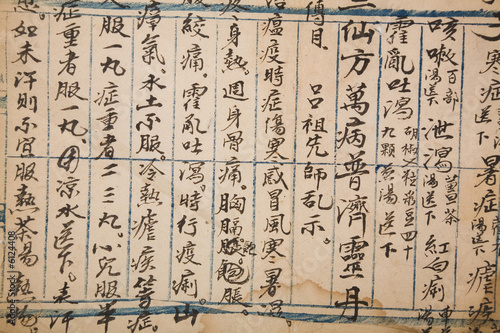 寒症 送下 暑症 瘧疾
咳嗽 百部湯送下 泄瀉 薑茶湯送下 紅白痢 車
霍亂吐瀉 胡椒 粒綠豆四十九顆煎湯送下
仙方萬病普濟靈丹
呂祖先師乩示。
治瘟疫時症傷寒感冒風寒暑濕
身熱。週身骨痛。胸膈飽脹。
絞痛。霍亂吐瀉。時行疫痢。山
瘴氣。水土不服。冷熱瘧疾等症。
服一丸症重者二三丸。小兒服半
症重者服一丸。用涼水送下。汗
如未汗則不宜服熱茶湯熱
6124408